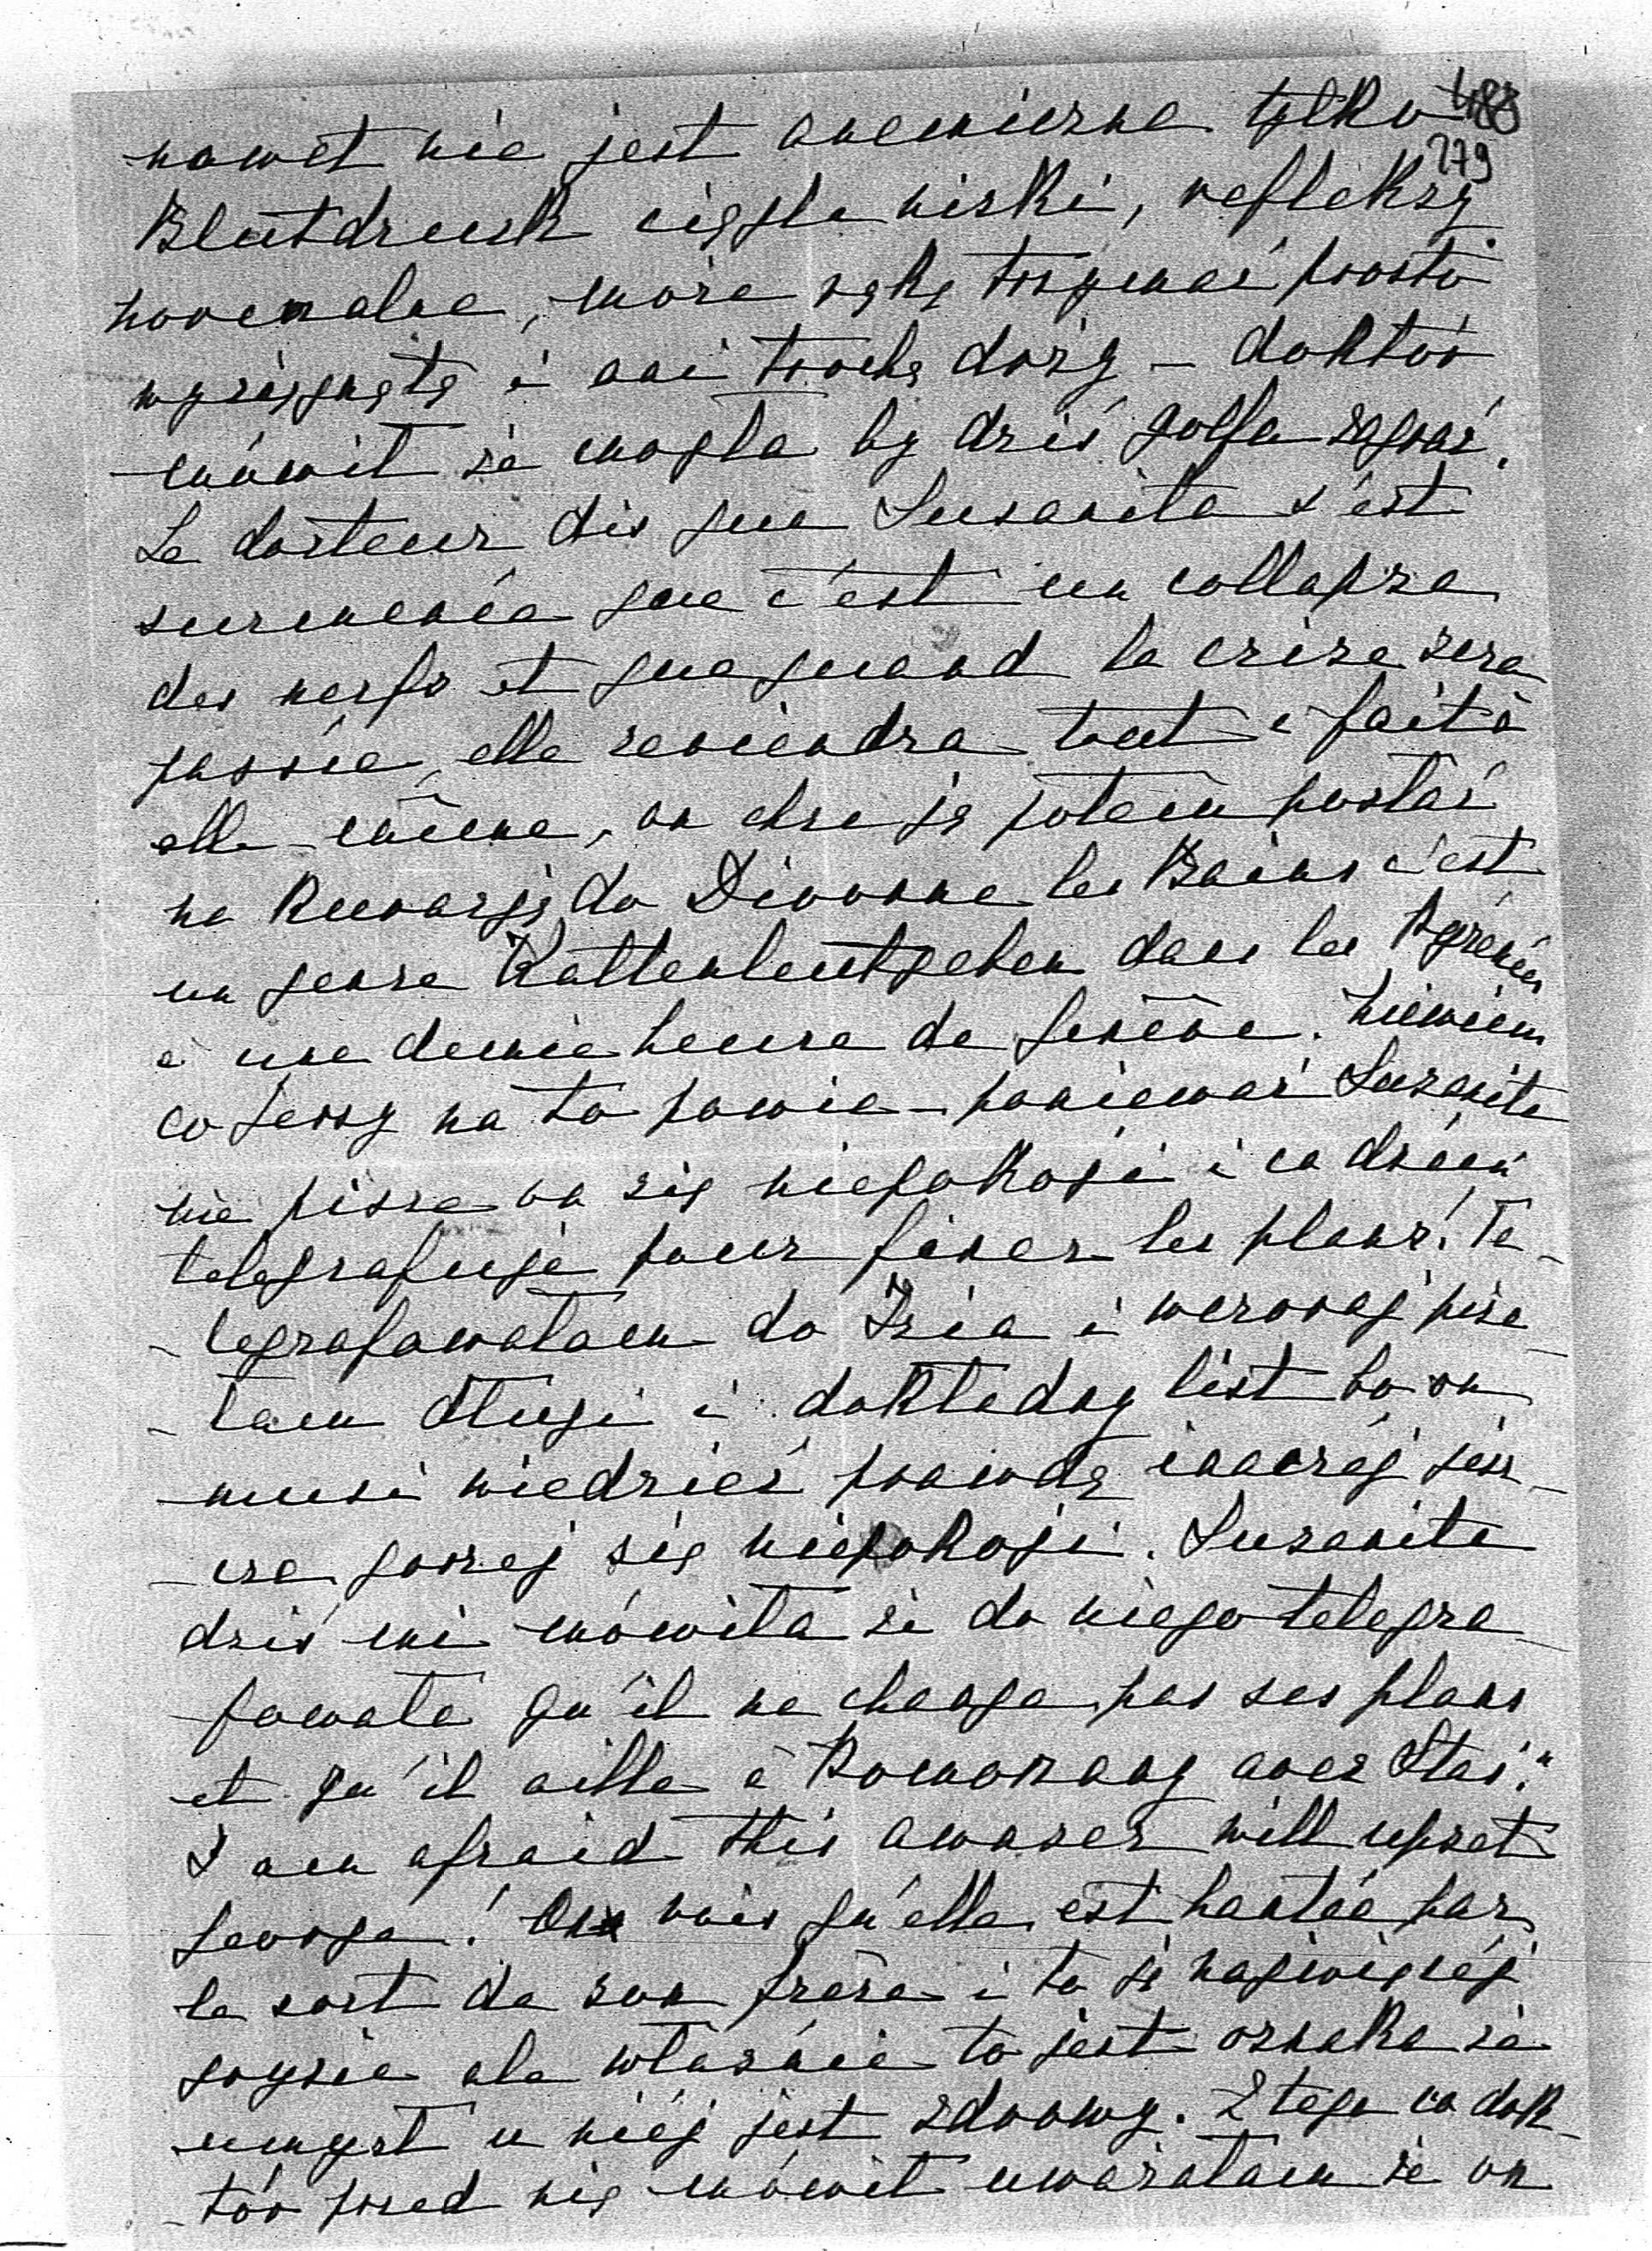 488
279
nawet nie jest anemiczna tylko
Blutdruck ciągle niski, refleksy
normalne, może rękę trzymać prosto
wyciągniętą i ani trochę drży - doktór
mówił że mogła by dziś golfa zagrać.
Le docteur dis que Susanita s'est
surmenée que c'est un collapse
des nerfs et que quand la crise sera
passée, elle reviendra tout à fait à
elle-même, on chce ją potem posłać
na kuracją do Divonne les Bains c'est
un genre Kaltenleutgeben dans les Pyrénées
à une demie heure de Genève. Niewiem
co Jerzy na to powie - ponieważ Suzanita
nie pisze on się niepokoji i co dzień
telegrafuje pour fixer les plans. Te-
-legrafowałam do Izia i wczoraj pisa-
-łam długi i dokładny list bo on
musi wiedzieć prawdę inaczéj jesz-
-cze gorzej się niepokoji. Suzanita
dziś mi mówiła że do niego telegra-
fowała qu'il ne change pas ses plans
et qu'il aille à Pomorzany avec Staś."
I am afraid this answer will upset
George! On vois qu'elle est hantée par
le sort de son frère i to ją najwięcéj
gryzie ale właśnie to jest oznaka że
umysł u niéj jest zdrowy. Z tego co dok-
-tór przed nią mówił uważałam że on